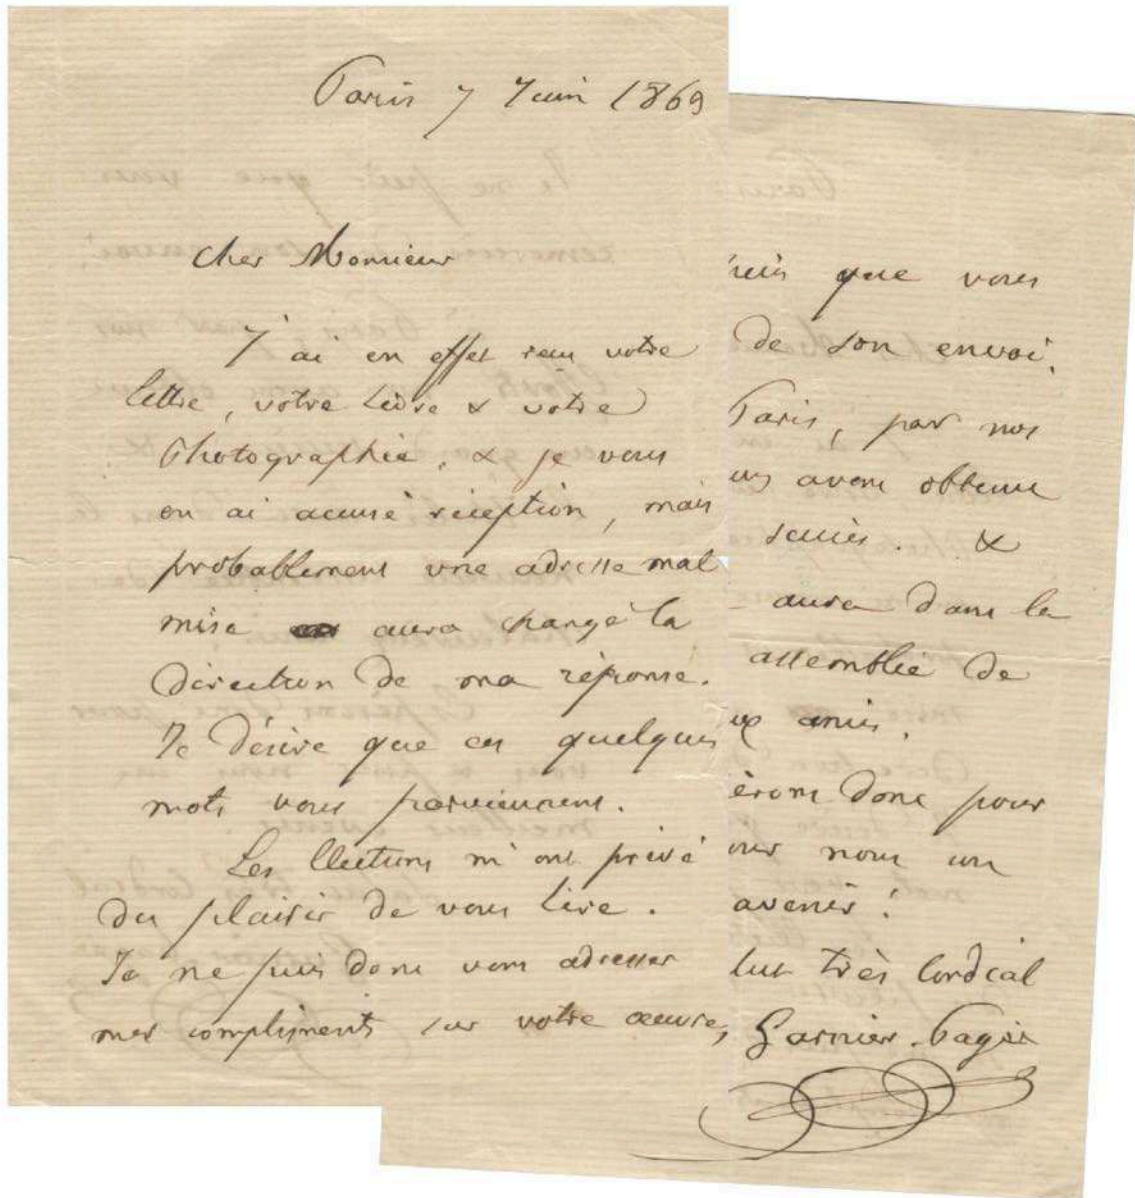 Paris 7 Juin 1869
Cher Monsieur
J'ai en effet reçu votre
lettre, votre livre & votre
Photographie, & je vous
en ai accusé réception, mais
probablement une adresse mal
mise aura changé la
direction de ma réponse.
Je désire que ces quelques
mots vous parviennent.
Les Elections m'ont privé
du plaisir de vous lire.
Je ne puis donc vous adresser
mes compliments sur votre œuvre,
uis que vous
de son envoi.
Paris, par nos
us avons obtenu
succès. &
aura dans la
assemblée de
ux amis.
érons donc pour
our nous un
avenir!
lut très Cordial
Garnier-Pagès